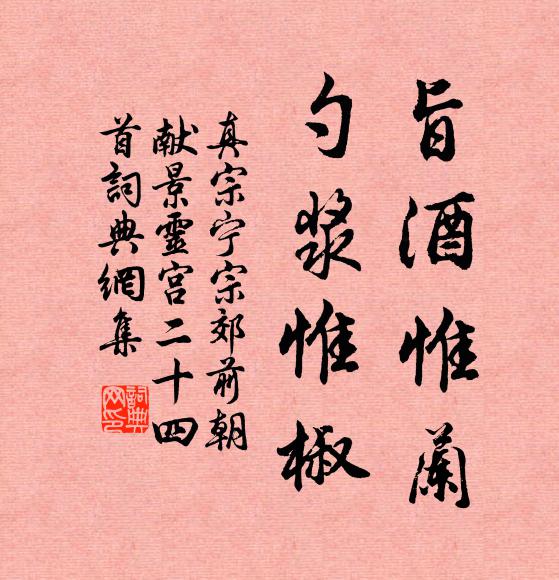 旨酒惟蘭
勺漿惟椒
真宗宁宗郊前朝
献景靈宮二十四
首詞典網集
詞典
网印